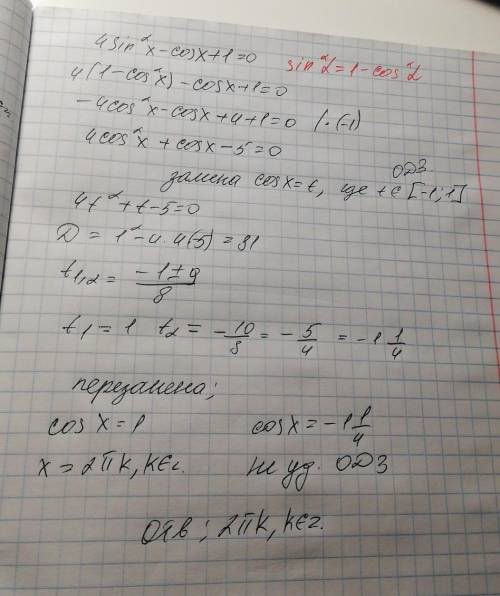 4sin²x-cosx+1=0
sin²α=1-cos²α
4(1-cos²x)-cosx+1=0
-4cos²x-cosx+4+1=0 |·(-1)
4cos²x+cosx-5=0
ОДЗ
замена cosx=t, где t∈[-1;1]
4t²+t-5=0
D=1²-4·4(-5)=81
t₁,₂=(-1±9)/8
t₁=1 t₂=-10/8=-5/4=-1 1/4
перезамена;
cosx=1 cosx=-1 1/4
x=2πk,k∈z. не уд. ОДЗ
Отв; 2πk,k∈z.